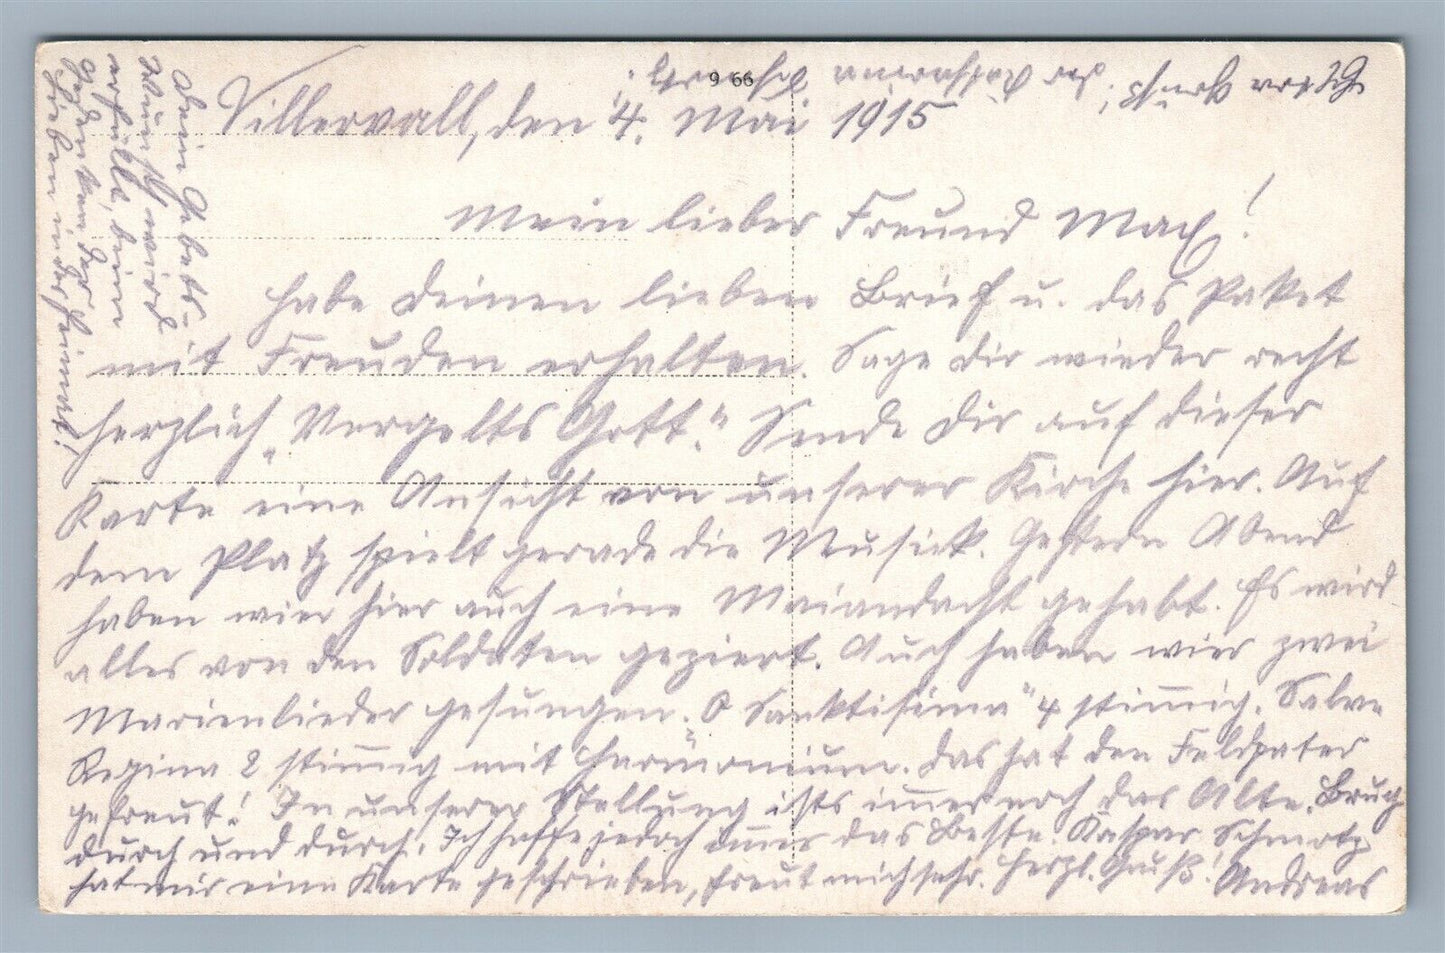 Villervall, den 4. Mai 1915
Mein lieber Freund Max!
habe Deinen lieben Brief u. das Paket
mit Freuden erhalten. Sage Dir wieder recht
herzlich „Vergelts Gott." Sende Dir auf dieser
Karte eine Ansicht von unserer Kirche hier. Auf
dem Platz spielt gerade die Musick. Gestern Abend
haben wier hier auch eine Maiandacht gehabt. Es wird
alles von den Soldaten geziert. Auch haben wier zwei
Marienlieder gesungen. „O Sanktisima" 4 stimig. Salve
Regina 2 stimig mit Harmonium. Das hat den Feldpater
gefreut! In unserer Stellung ists imer noch das Alte.
durch und durch. Ich hoffe jedoch imer das Beste. Kaspar
hat mir eine Karte geschrieben, freut mich sehr. Herzl. Gruß! Andreas
Dein Gebets-
wunsch wird
erfüllt, beim
Gedenken der
Lieben in der Heimat!
9 66